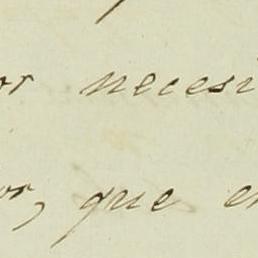 or neces
or, que e